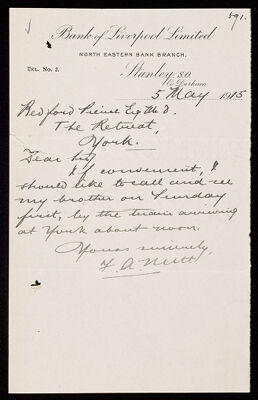 591.
Bank of Liverpool Limited
NORTH EASTERN BANK BRANCH.
TEL. No. 2.
Stanley, S.O.
Co Durham
5 May 1915
Bedford Pierce Esq M.D.
The Retreat,
York.
Dear Sir,
If convenient, I
should like to call and see
my brother on Sunday
first, by the train arriving
at York about noon.
Yours sincerely,
F. A. Nutt